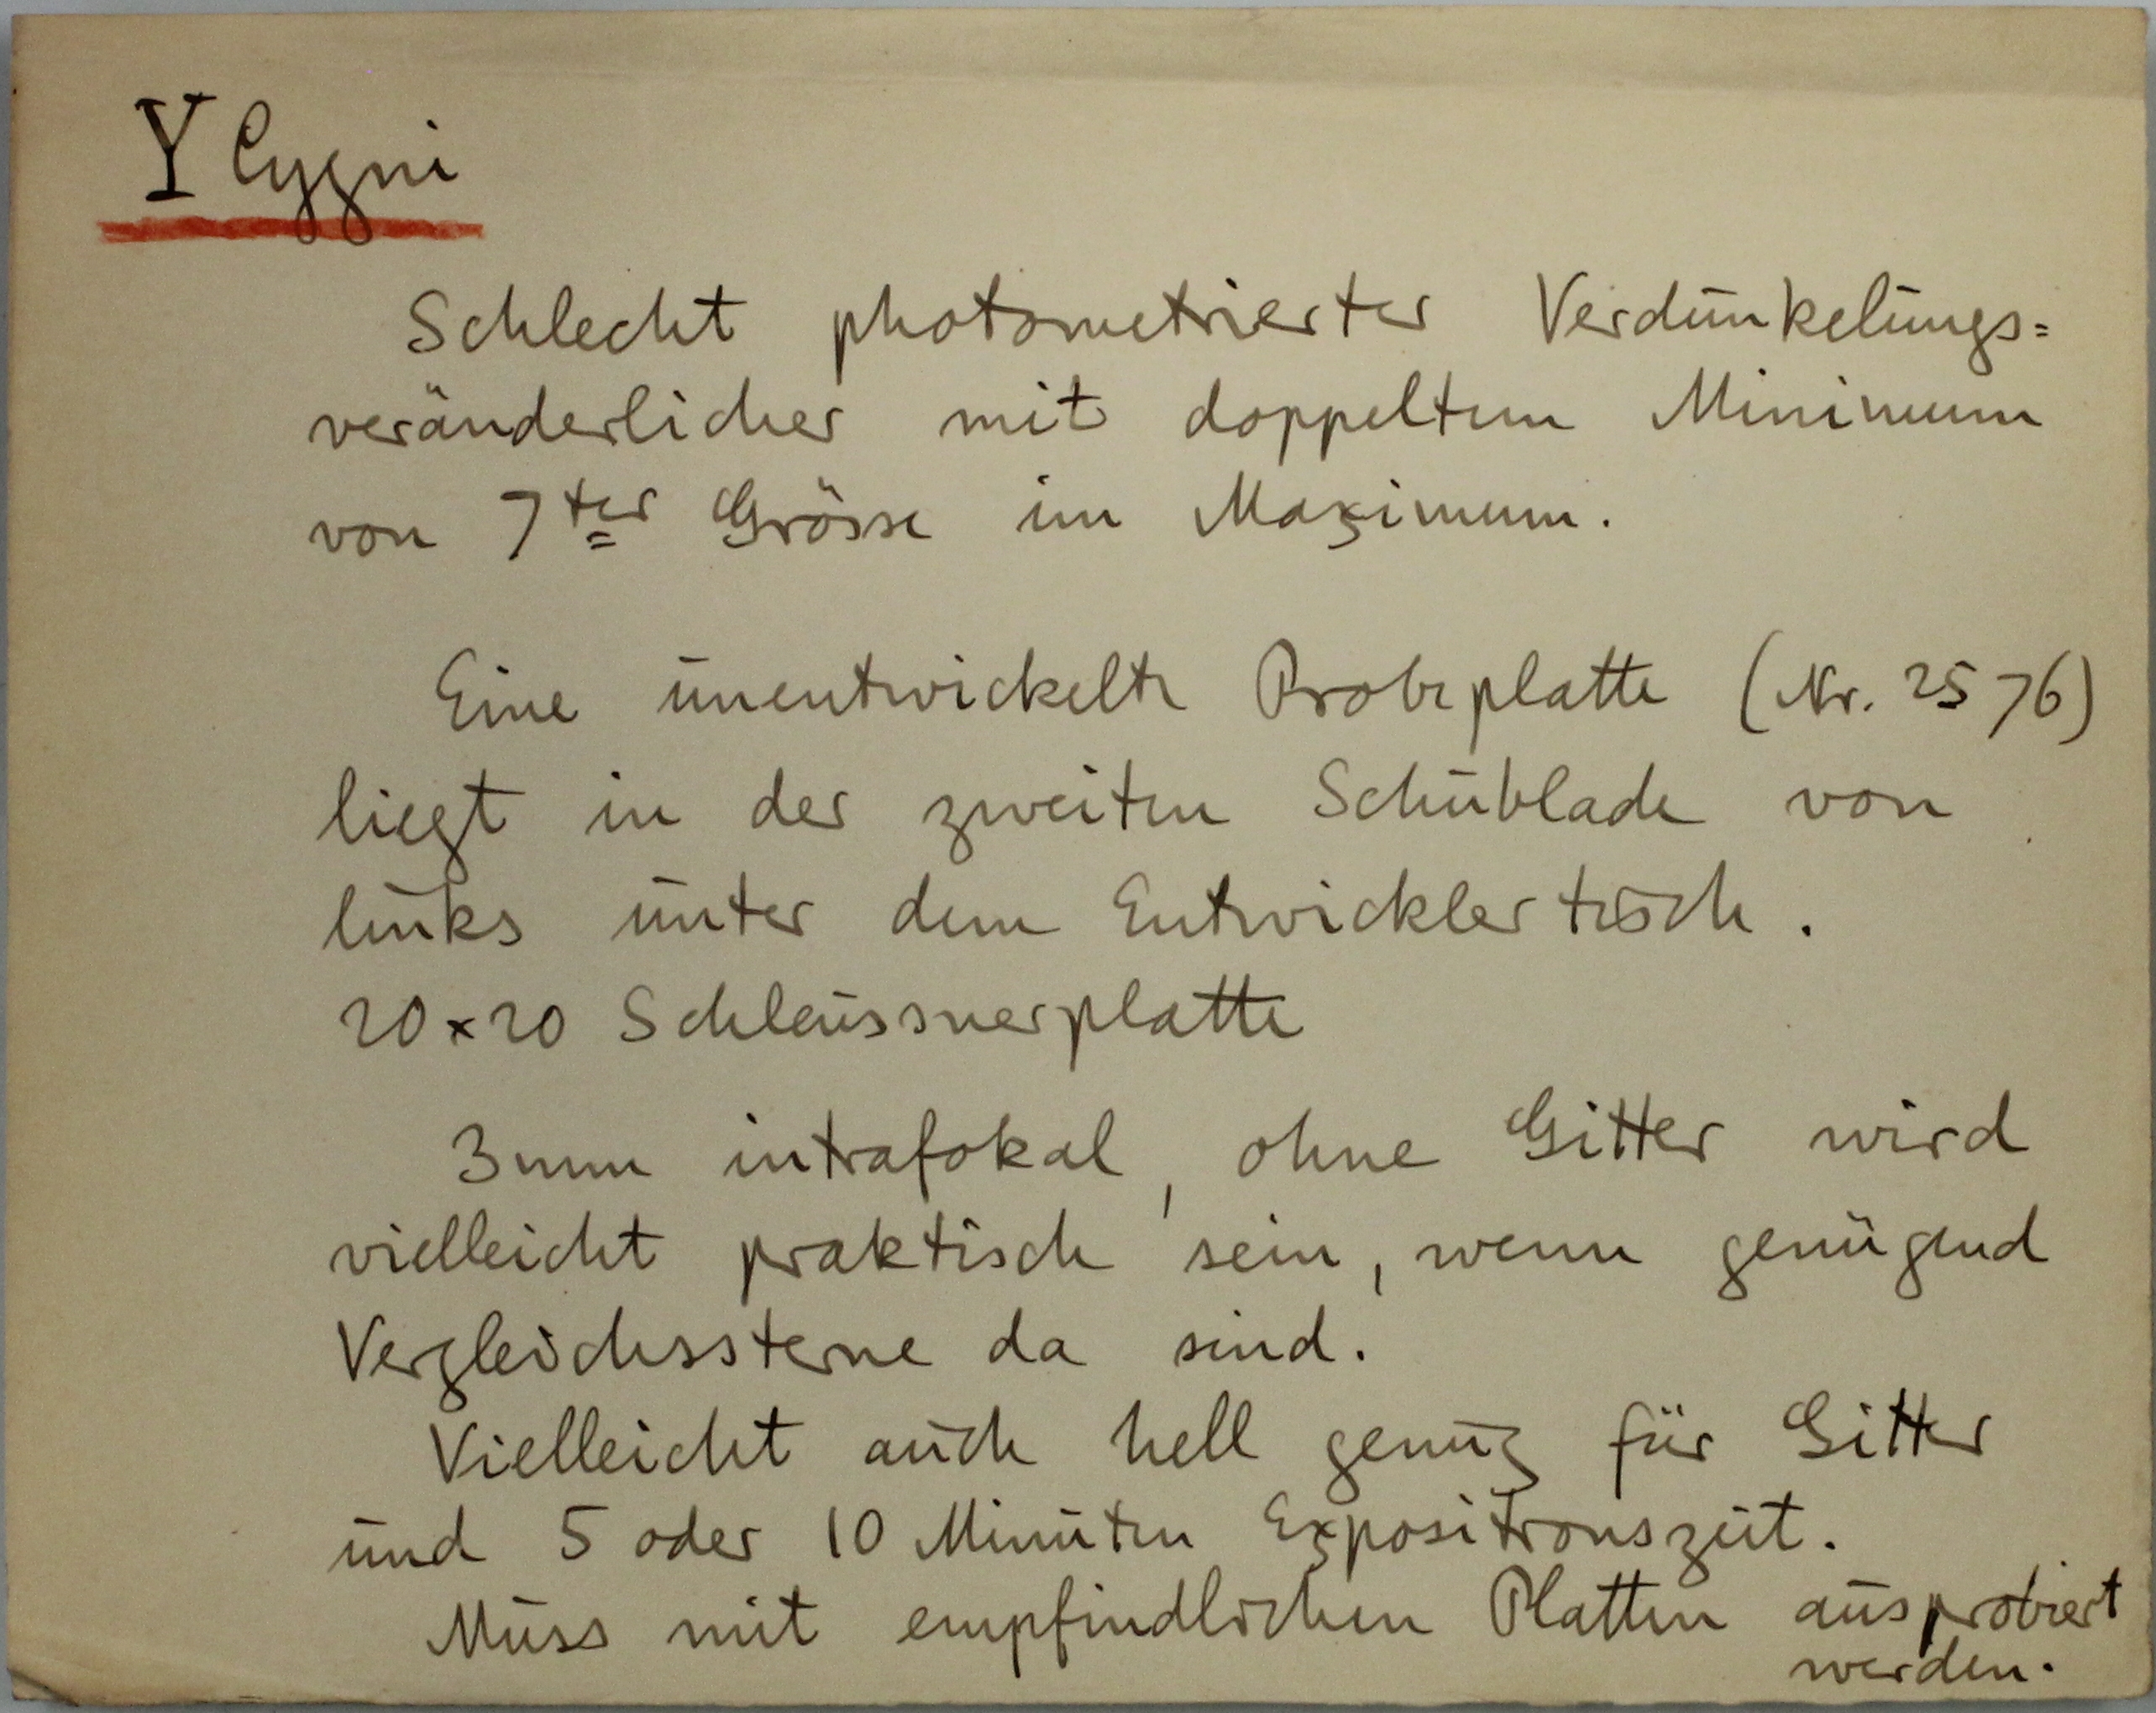 Y Cygni
Schlecht photometrierter Verdunkelungs=
veränderlicher mit doppeltem Minimum
von 7ter Grösse im Maximum.
Eine unentwickelte Probeplatte (Nr. 2576)
liegt in der zweiten Schublade von
links unter dem Entwicklertisch.
20×20 Schleussnerplatte
3mm intrafokal, ohne Gitter wird
vielleicht praktisch sein, wenn genügend
Vergleichssterne da sind.
Vielleicht auch hell genug für Gitter
und 5 oder 10 Minuten Expositionszeit.
Muss mit empfindlichen Platten ausprobiert
werden.